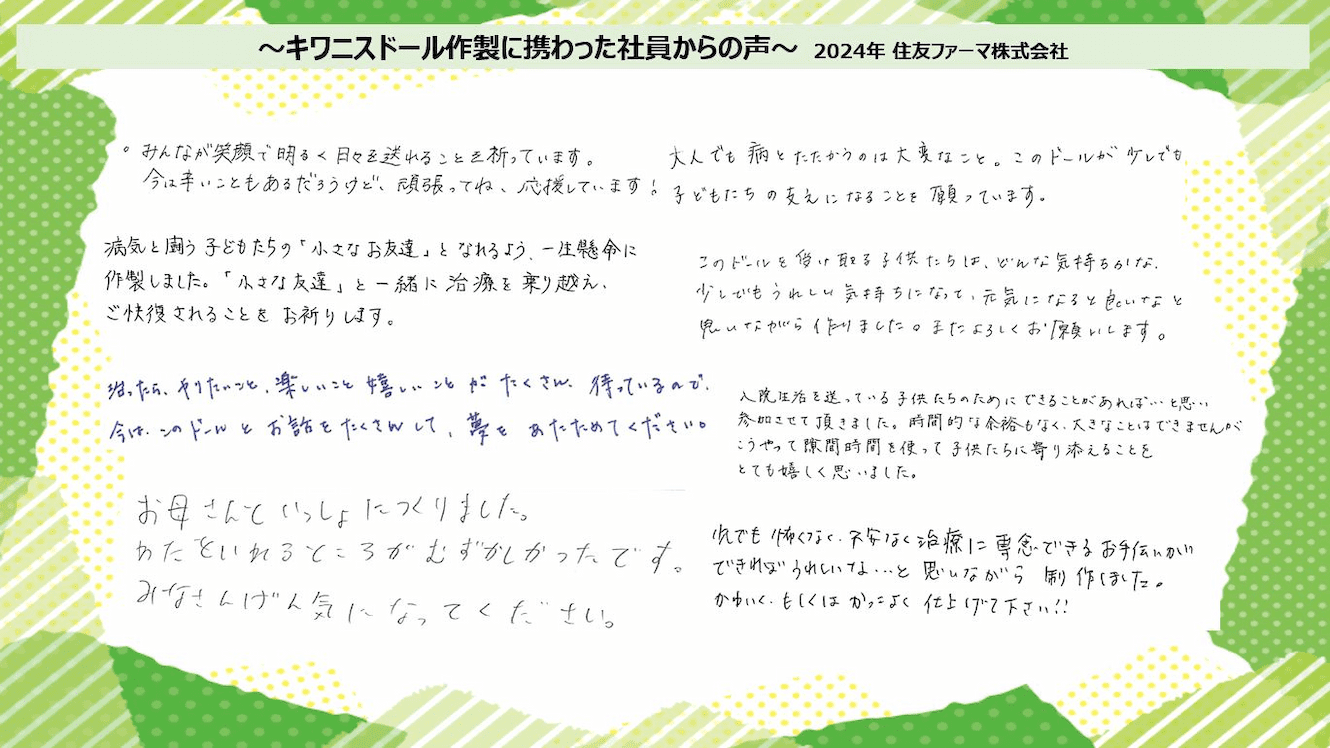 ～キワニスドール作製に携わった社員からの声～ 2024年 住友ファーマ株式会社
。みんなが笑顔で明るく日々を送れることを祈っています。
今は辛いこともあるだろうけど、頑張ってね、応援しています！
病気と闘う子どもたちの「小さなお友達」となれるよう、一生懸命に
作製しました。「小さな友達」と一緒に治療を乗り越え、
ご快復されることをお祈りします。
治ったら、やりたいこと、楽しいこと嬉しいことがたくさん待っているので、
今は、このドールとお話をたくさんして、夢をあたためてください。
お母さんといっしょにつくりました。
わたをいれるところがむずかしかったです。
みなさんげん気になってください。
大人でも病とたたかうのは大変なこと。このドールが少しでも
子どもたちの支えになることを願っています。
このドールを受け取る子供たちは、どんな気持ちかな、
少しでもうれしい気持ちになって、元気になると良いなと
思いながら作りました。またよろしくお願いします。
入院生活を送っている子供たちのためにできることがあればいいと思い
参加させて頂きました。時間的な余裕もなく、大きなことはできませんが
こうやって隙間時間を使って子供たちに寄り添えることを
とても嬉しく思いました。
少しでも怖くなく、不安なく治療に専念できるお手伝いが
できればうれしいな…と思いながら制作しました。
かわいく、もしくはかっこよく仕上げて下さい!!